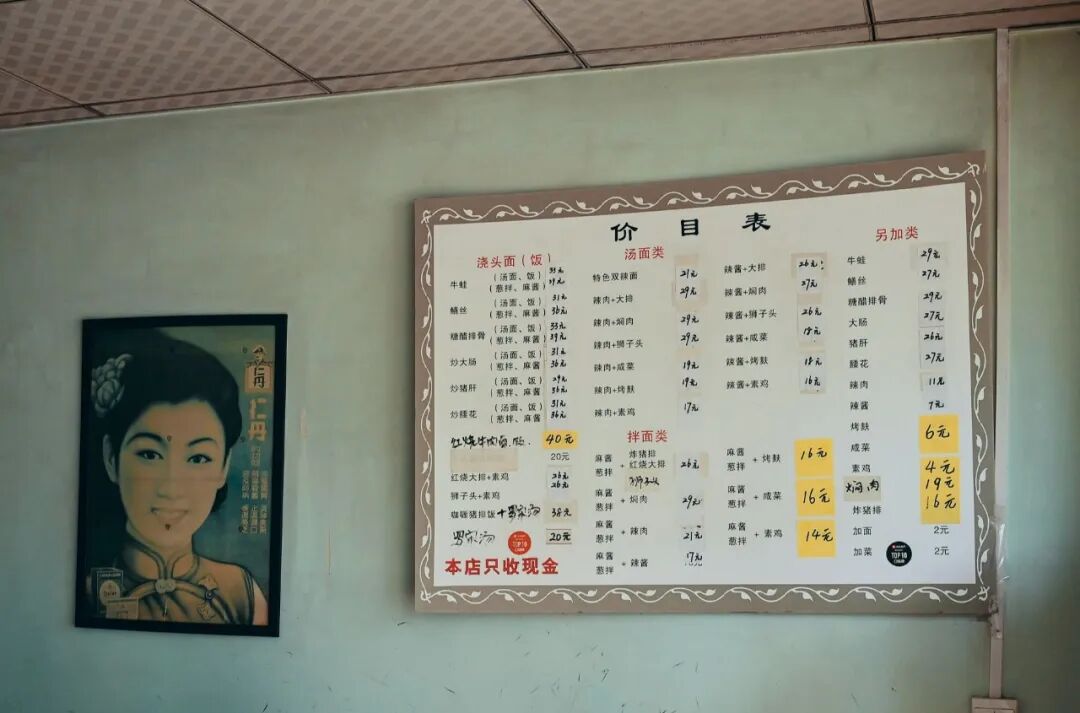 仁丹
价目表
浇头面（饭）
牛蛙（汤面、饭）33元
（葱拌、麻酱）39元
鳝丝（汤面、饭）31元
（葱拌、麻酱）36元
糖醋排骨（汤面、饭）33元
（葱拌、麻酱）39元
炒大肠（汤面、饭）31元
（葱拌、麻酱）36元
炒猪肝（汤面、饭）29元
（葱拌、麻酱）36元
炒腰花（汤面、饭）31元
（葱拌、麻酱）36元
红烧牛肉面.饭. 40元
20元
红烧大排+素鸡 26元
狮子头+素鸡 26元
咖喱猪排饭+罗宋汤 38元
罗宋汤 20元
本店只收现金
TOP 10
汤面类
特色双辣面 21元
辣肉+大排 29元
辣肉+焖肉 29元
辣肉+狮子头 29元
辣肉+咸菜 19元
辣肉+烤麸 19元
辣肉+素鸡 17元
辣酱+大排 26元
辣酱+焖肉 27元
辣酱+狮子头 26元
辣酱+咸菜 18元
辣酱+烤麸 18元
辣酱+素鸡 16元
拌面类
麻酱 葱拌 + 炸猪排 红烧大排 狮子头 26元
麻酱 葱拌 + 焖肉 29元
麻酱 葱拌 + 辣肉 21元
麻酱 葱拌 + 辣酱 17元
麻酱 葱拌 + 烤麸 16元
麻酱 葱拌 + 咸菜 16元
麻酱 葱拌 + 素鸡 14元
另加类
牛蛙 29元
鳝丝 27元
糖醋排骨 29元
大肠 27元
猪肝 26元
腰花 27元
辣肉 11元
辣酱 7元
烤麸
咸菜 6元
素鸡 4元
焖肉 19元
炸猪排 16元
加面 2元
加菜 2元
TOP 10